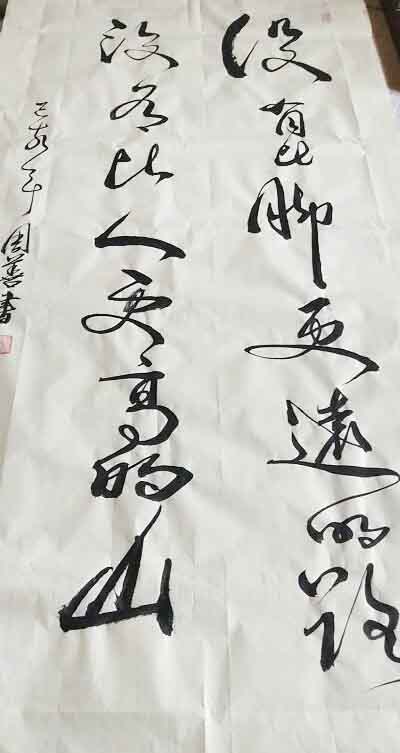 没有比脚更遠的路
没有比人更高的山
己亥年周善書